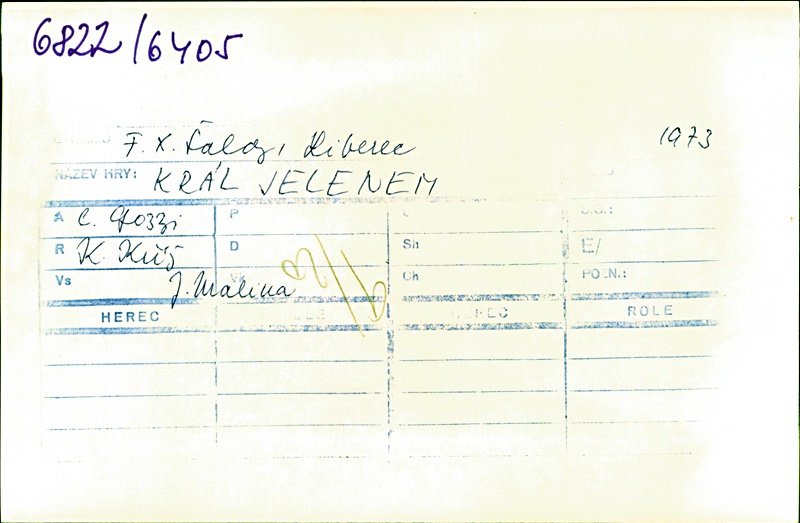 6822/6405
F. X. Šaldy, Liberec 1973
NÁZEV HRY: KRÁL JELENEM
A C. Gozzi P
R K. Kříž D Sh E/
Vs J. Malina Ch POZN.:
HEREC ROLE HEREC ROLE